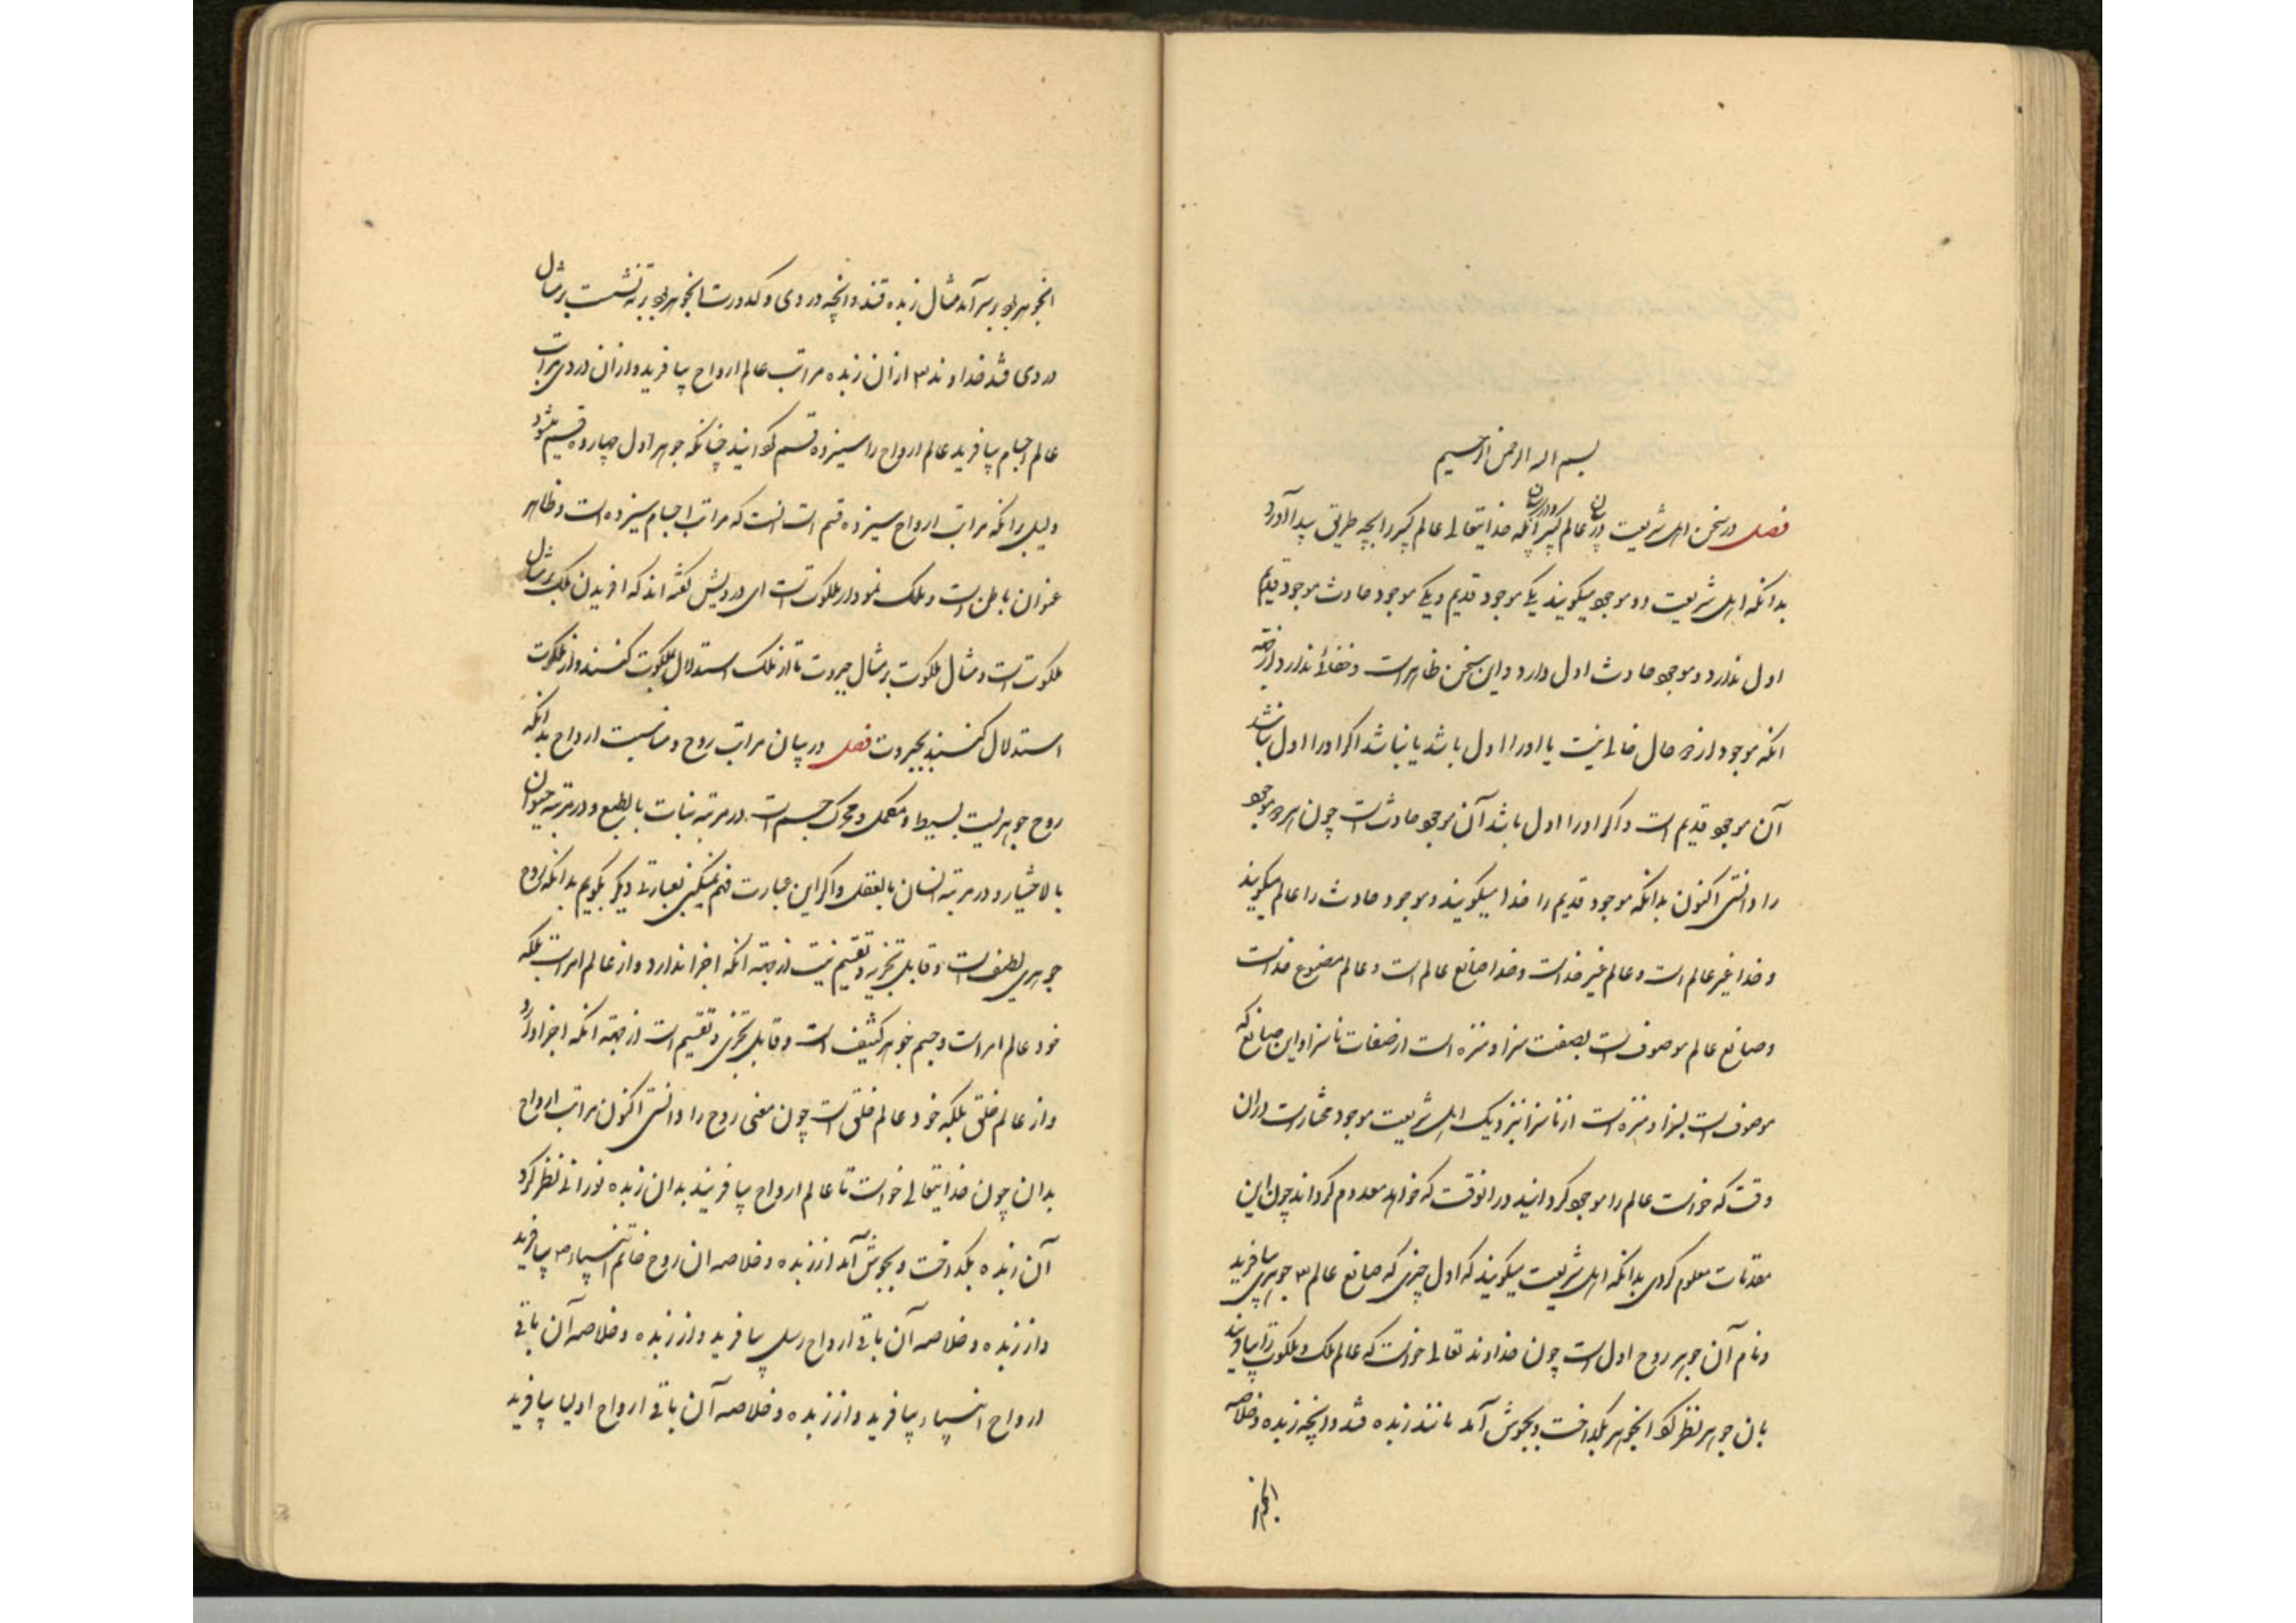 بسم الله الرحمن الرحیم
فصل در سخن اهل شریعت در بیان عالم کبیر و در بیان آنکه خدایتعالی عالم کبیر را بچه طریق پیدا آورد
بدانکه اهل شریعت دو موجود میگویند یکی موجود قدیم و یکی موجود حادث موجود قدیم
اول ندارد و موجود حادث اول دارد و این سخن ظاهرست و خفائی ندارد از جهة
انکه موجود از دو حال خالی نیست یا او را اول باشد یا نباشد اکر او را اول نباشد
آن موجود قدیم است و اکر او را اول باشد آن موجود حادث است چون هر دو موجود
را دانستی اکنون بدانکه موجود قدیم را خدا میکویند و موجود حادث را عالم میکویند
و خدا غیر عالم است و عالم غیر خداست و خدا صانع عالم است و عالم مصنوع خداست
و صانع عالم موصوف است بصفت سزا و منزه است از صفات ناسزا و این صانع که
موصوف است بسزا و منزه است از ناسزا بنزدیک اهل شریعت موجود مختارست در ان
وقت که خواست عالم را موجود کردانید و در انوقت که خواهد معدوم کرداند چون این
مقدمات معلوم کردی بدانکه اهل شریعت میکویند که اول چیزی که صانع عالم جوهری بیافرید
و نام آن جوهر روح اول است چون خداوند تعالی خواست که عالم ملک و ملکوت را بیافریند
بان جوهر نظر کرد انجوهر بکداخت و بجوش آمد مانند زبده قند و انچه زبده و خلاصه
انجوهر
انجوهر بود بر سر آمد مثال زبده قند و انچه دردی و کدورت انجوهر بود بته نشست بر مثال
دردی قند خداوند از ان زبده مراتب عالم ارواح بیافرید و از ان دردی مراتب
عالم اجسام بیافرید عالم ارواح را سیزده قسم کردانید چنانکه جوهر اول چهارده قسم شود
دلیل بر انکه مراتب ارواح سیزده قسم است انست که مراتب اجسام سیزده است و ظاهر
عنوان باطن است و ملک نمودار ملکوت است ای درویش گفته اند که افریدن ملک بر مثال
ملکوت است و مثال ملکوت بر مثال جبروت تا از ملک استدلال بملکوت کنند و از ملکوت
استدلال کنند بجبروت فصل در بیان مراتب روح و مناسبت ارواح بدانکه
روح جوهریست بسیط و مکمل و محرک جسم است در مرتبه نبات بالطبع و در مرتبه حیوان
بالاختیار و در مرتبه انسان بالعقل و اکر این عبارت فهم نمیکنی بعبارتی دیکر بکویم بدانکه روح
جوهری لطیف است و قابل تجزیه و تقسیم نیست از جهة انکه اجزا ندارد و از عالم امر است بلکه
خود عالم امر است و جسم جوهر کثیف است و قابل تجزی و تقسیم است از جهة انکه اجزا دارد
و از عالم خلق بلکه خود عالم خلق است چون معنی روح را دانستی اکنون مراتب ارواح
بدان چون خدایتعالی خواست تا عالم ارواح بیافریند بدان زبده نورانی نظر کرد
آن زبده بکداخت و بجوش آمد از زبده و خلاصه ان روح خاتم انبیاء بیافرید
و از زبده و خلاصه آن باقی ارواح رسل بیافرید و از زبده و خلاصه آن باقی
ارواح انبیاء بیافرید و از زبده و خلاصه آن باقی ارواح اولیا بیافرید